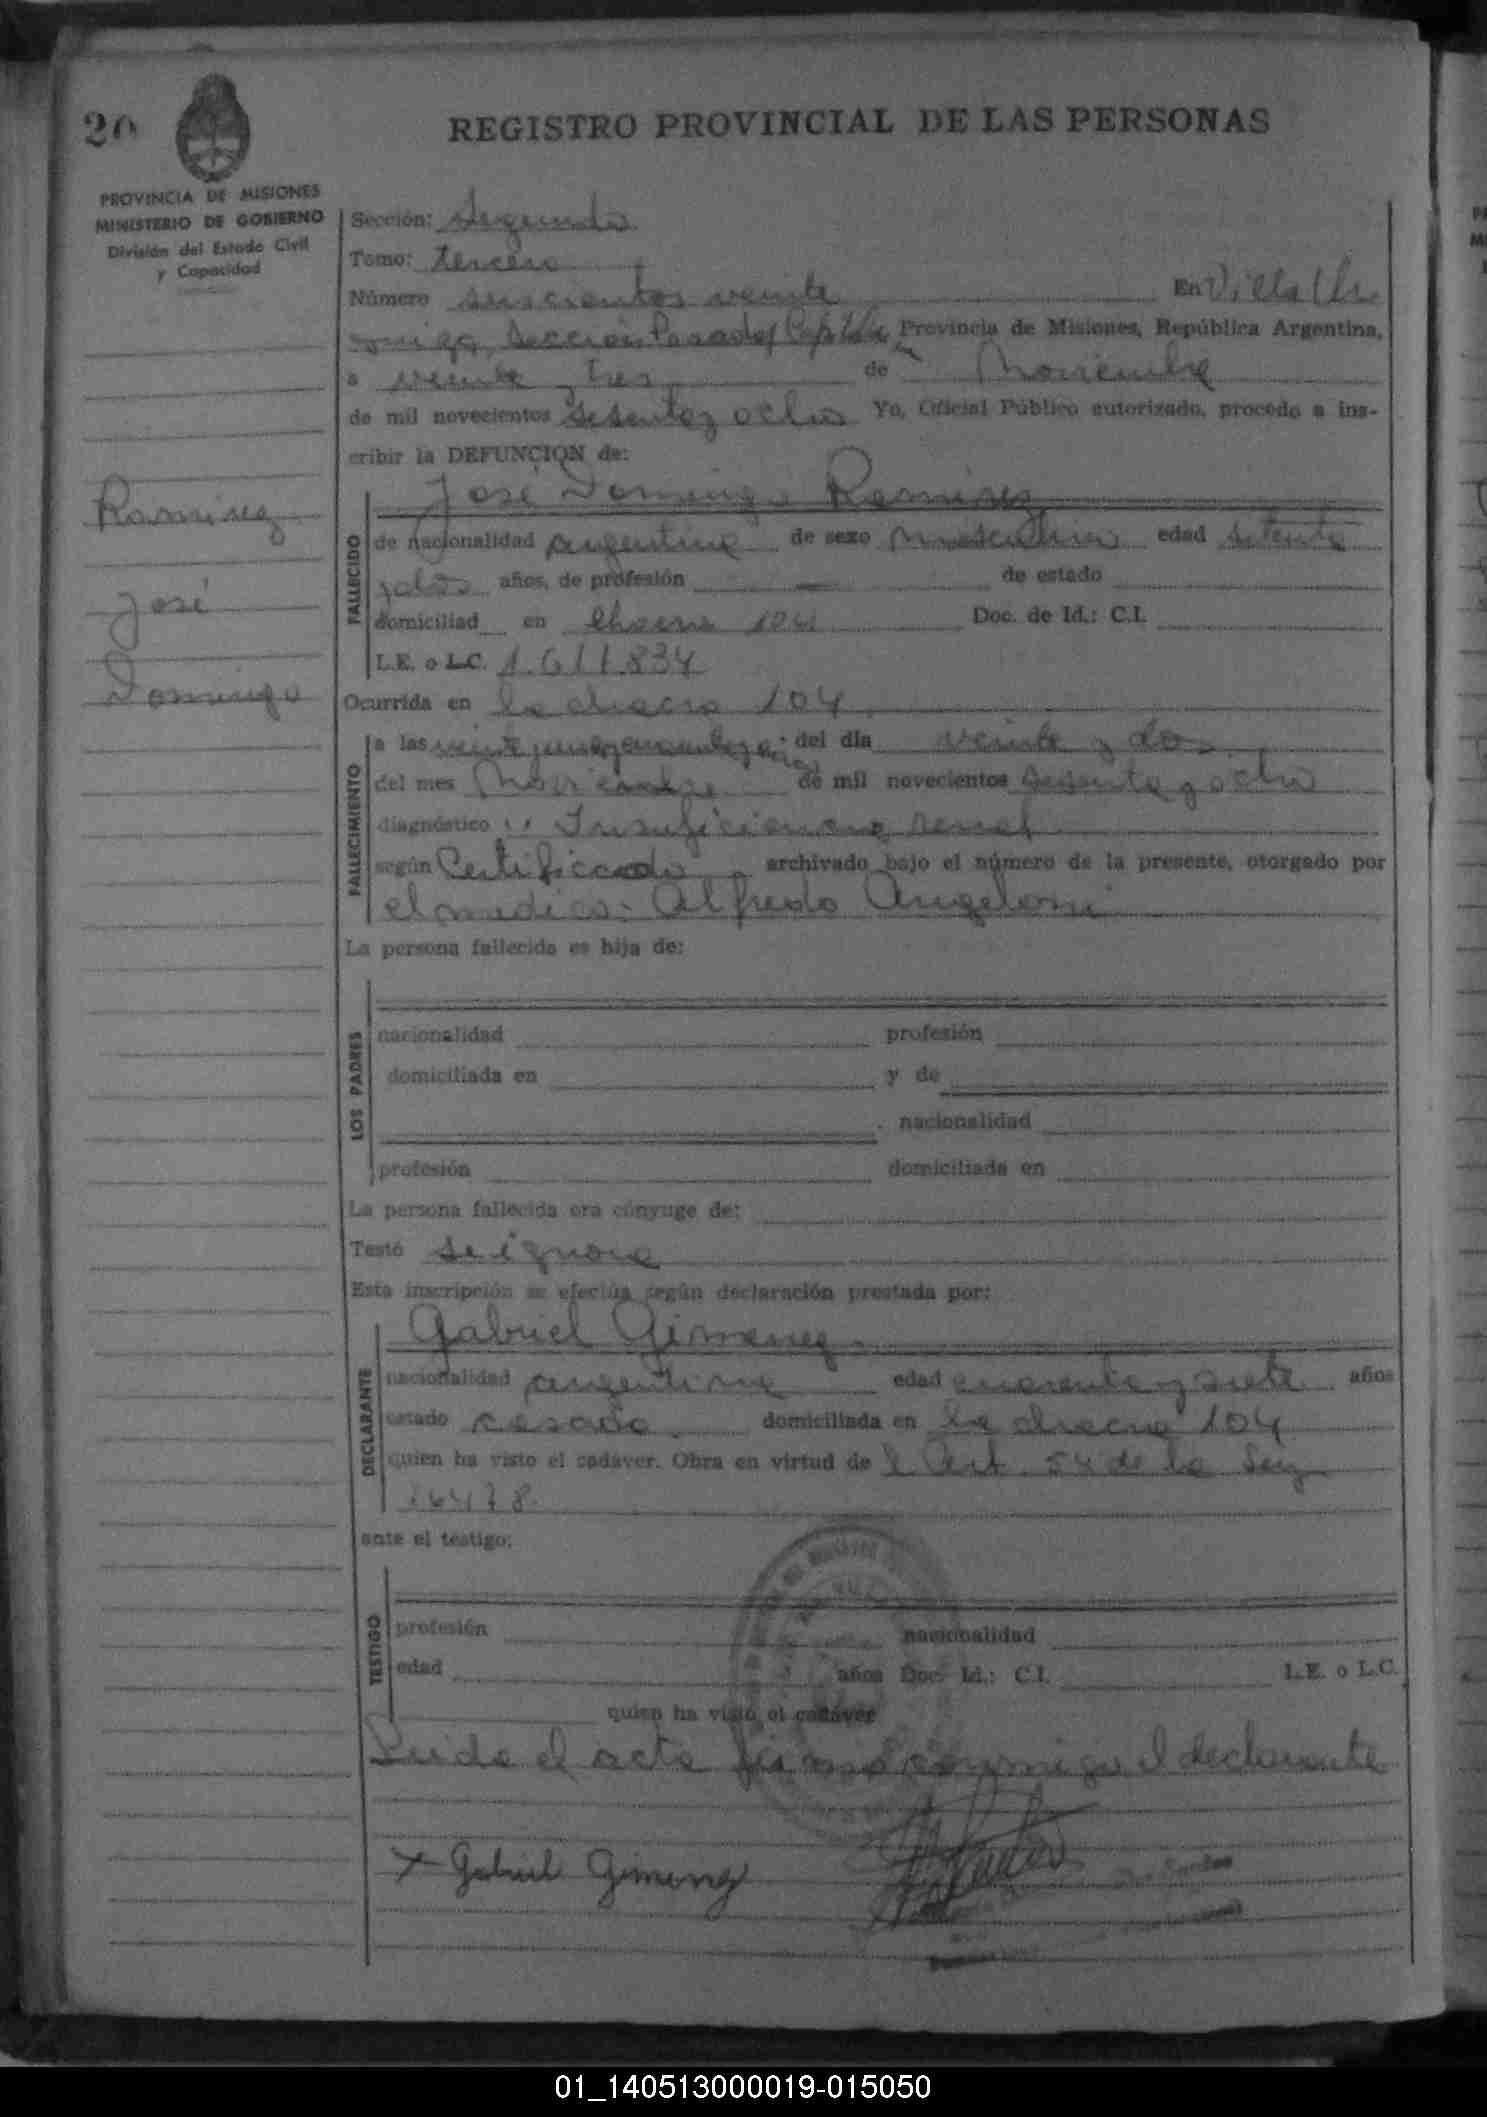 20
REGISTRO PROVINCIAL DE LAS PERSONAS
PROVINCIA DE MISIONES
MINISTERIO DE GOBIERNO
División del Estado Civil
y Capacidad
Sección: Segunda
Tomo: tercero
Número seiscientos veinte En Villa
Sección Posadas Capital Provincia de Misiones, República Argentina,
a veinte y tres de Noviembre
de mil novecientos sesenta y ocho Yo, Oficial Público autorizado, procedo a ins-
cribir la DEFUNCION de:
Ramirez
José
Domingo
FALLECIDO
José Domingo Ramirez
de nacionalidad argentina de sexo masculino edad setenta
y dos años, de profesión — de estado
domiciliad en chacra 104 Doc. de Id.: C.I.
L.E. o L.C. 1.611.834
Ocurrida en la chacra 104
FALLECIMIENTO
a las veinte del día veinte y dos
del mes Noviembre de mil novecientos sesenta y ocho
diagnóstico Insuficiencia renal
según Certificado archivado bajo el número de la presente, otorgado por
el medico: Alfredo Angeloni
La persona fallecida es hija de:
LOS PADRES
nacionalidad profesión
domiciliada en y de
nacionalidad
profesión domiciliada en
La persona fallecida era cónyuge de:
Testó se ignora
Esta inscripción se efectúa según declaración prestada por:
DECLARANTE
Gabriel Gimenez
nacionalidad argentina edad cuarenta y siete años
estado casado domiciliada en la chacra 104
quien ha visto el cadáver. Obra en virtud de l Art. 54 de la Ley
16478
ante el testigo:
TESTIGO
profesión nacionalidad
edad años Doc. Id.: C.I. L.E. o L.C.
quien ha visto el cadáver
Leida el acta firma conmigo el declarante
x Gabriel Gimenez
Dos Santos
01_140513000019-015050